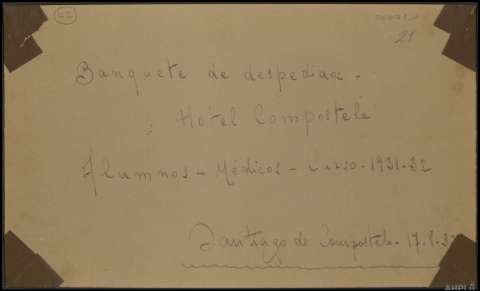 21
Banquete de despedida.
Hotel Compostela
Alumnos - Médicos - Curso - 1931-32
Santiago de Compostela -